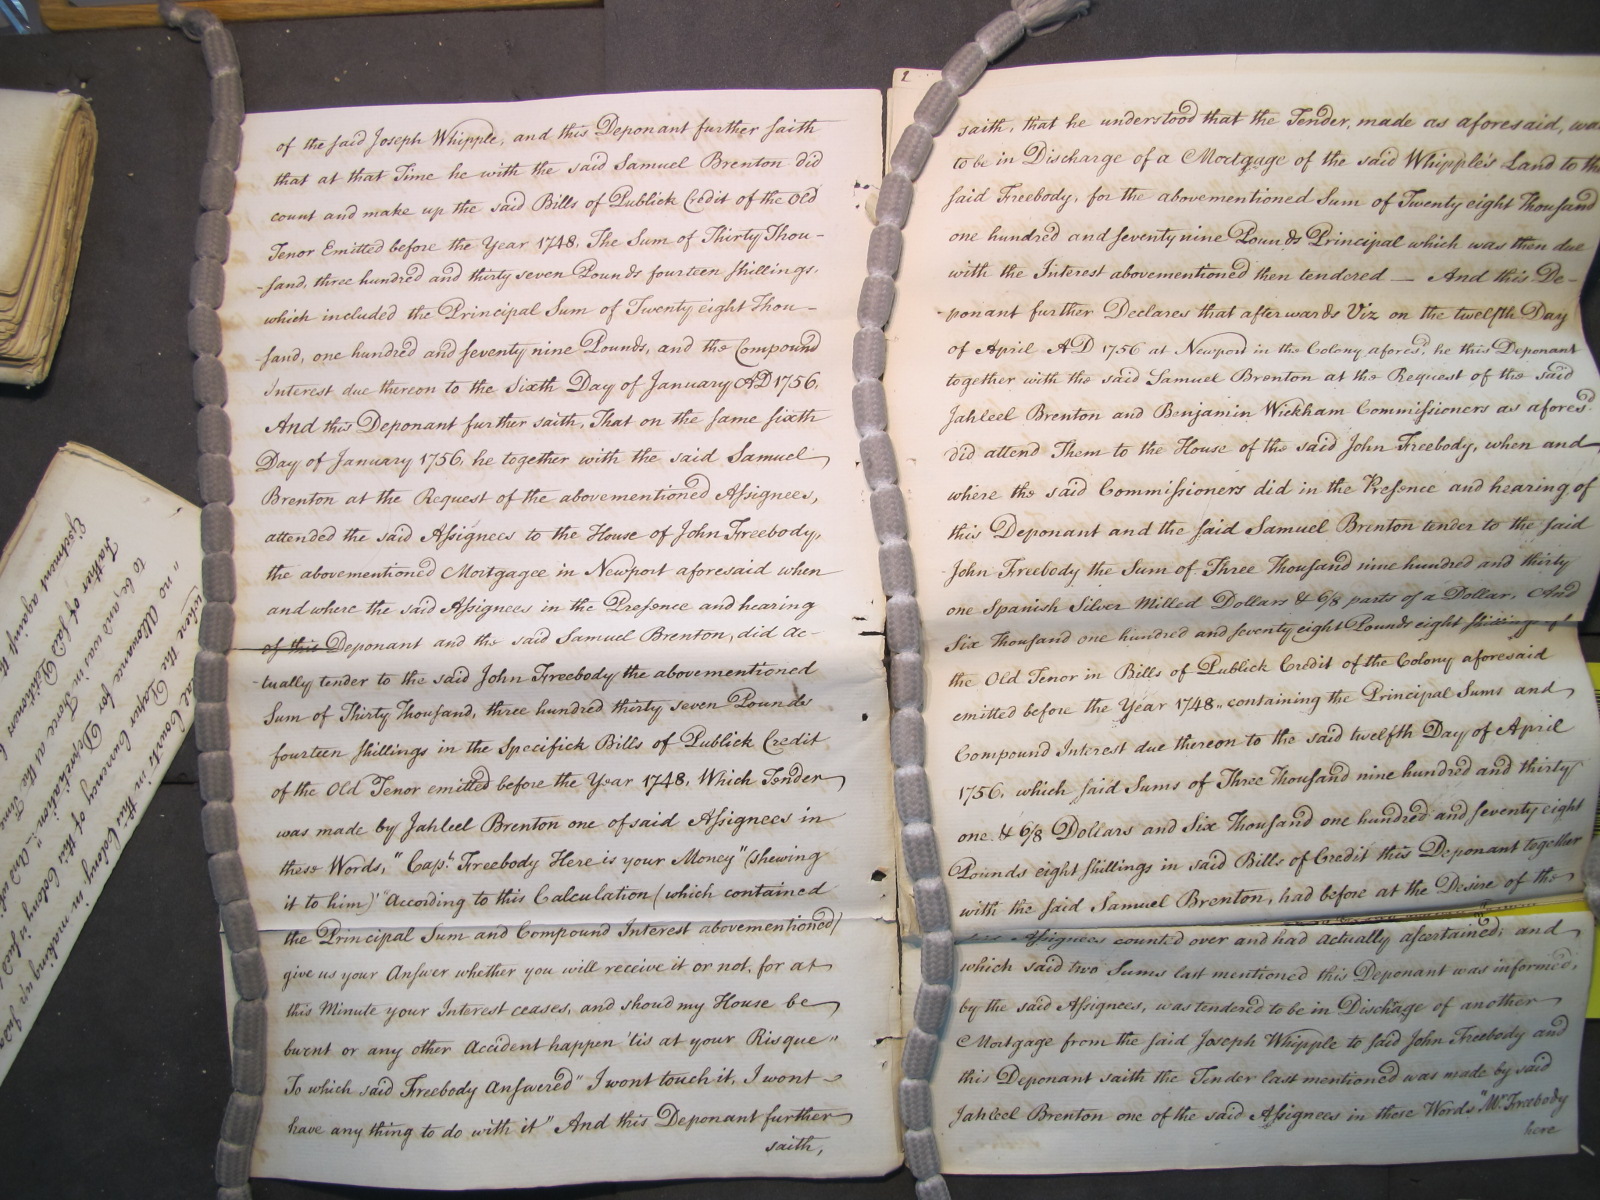 of the said Joseph Whipple, and this Deponant further saith
that at that Time he with the said Samuel Brenton did
count and make up the said Bills of Publick Credit of the Old
Tenor Emitted before the Year 1748, The Sum of Thirty Thou-
-sand, three hundred and thirty seven Pounds fourteen shillings,
which included the Principal Sum of Twenty eight Thou-
-sand, one hundred and seventy nine Pounds, and the Compound
Interest due thereon to the Sixth Day of January AD 1756.
And this Deponant further saith, That on the same sixth
Day of January 1756, he together with the said Samuel
Brenton at the Request of the abovementioned Assignees,
attended the said Assignees to the House of John Freebody,
the abovementioned Mortgagee in Newport aforesaid when
and where the said Assignees in the Presence and hearing
of this Deponant and the said Samuel Brenton, did ac-
-tually tender to the said John Freebody the abovementioned
Sum of Thirty Thousand, three hundred thirty seven Pounds
fourteen shillings in the Specifick Bills of Publick Credit
of the Old Tenor emitted before the Year 1748, Which Tender
was made by Jahleel Brenton one of said Assignees in
these Words, "Capt. Freebody Here is your Money" (shewing
it to him) "According to this Calculation (which contained
the Principal Sum and Compound Interest abovementioned)
give us your Answer whether you will receive it or not, for at
this Minute your Interest ceases, and shoud my House be
burnt or any other Accident happen 'tis at your Risque"
To which said Freebody Answered "I wont touch it, I wont
have any thing to do with it" And this Deponant further
saith,
saith, that he understood that the Tender, made as aforesaid, was
to be in Discharge of a Mortgage of the said Whipple's Land to the
said Freebody, for the abovementioned Sum of Twenty eight Thousand
one hundred and seventy nine Pounds Principal which was then due
with the Interest abovementioned then tendered — And this De-
-ponant further Declares that afterwards Viz on the twelfth Day
of April AD 1756 at Newport in the Colony afores.d, he this Deponant
together with the said Samuel Brenton at the Request of the said
Jahleel Brenton and Benjamin Wickham Commissioners as afores.d
did attend Them to the House of the said John Freebody, when and
where the said Commissioners did in the Presence and hearing of
this Deponant and the said Samuel Brenton tender to the said
John Freebody the Sum of Three Thousand nine hundred and thirty
one Spanish Silver Milled Dollars & 6/8 parts of a Dollar, And
Six Thousand one hundred and seventy eight Pounds eight shillings of
the Old Tenor in Bills of Publick Credit of the Colony aforesaid
emitted before the Year 1748, containing the Principal Sums and
Compound Interest due thereon to the said twelfth Day of April
1756, which said Sums of Three Thousand nine hundred and thirty
one & 6/8 Dollars and Six Thousand one hundred and seventy eight
Pounds eight shillings in said Bills of Credit this Deponant together
with the said Samuel Brenton, had before at the Desire of the
Assignees counted over and had actually ascertained, and
which said two Sums last mentioned this Deponant was informed,
by the said Assignees, was tendered to be in Discharge of another
Mortgage from the said Joseph Whipple to said John Freebody and
this Deponant saith the Tender last mentioned was made by said
Jahleel Brenton one of the said Assignees in these Words "Mr Freebody
here
Courts in this Colony in making up
when the Paper Currency of this Colony is sued
"no Allowance for Depreciation." And
to be, and was in Force at the Time
Father of said Petitioners
Ejectment against the